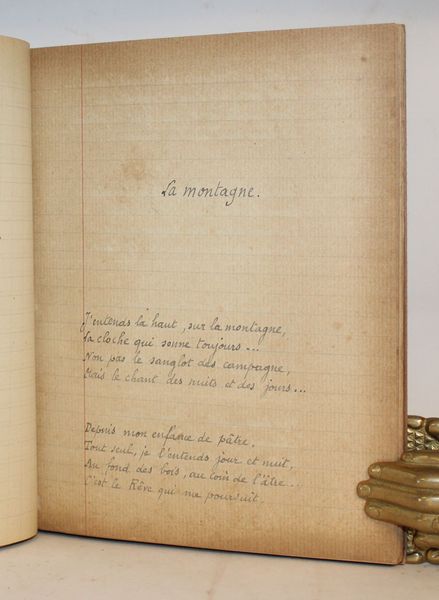 La montagne.
J'entends là haut, sur la montagne,
La cloche qui sonne toujours...
Non pas le sanglot des campagne,
Mais le chant des nuits et des jours...
Depuis mon enfance de pâtre.
Tout seul, je l'entends jour et nuit,
Au fond des bois, au coin de l'âtre...
C'est le Rêve qui me poursuit.